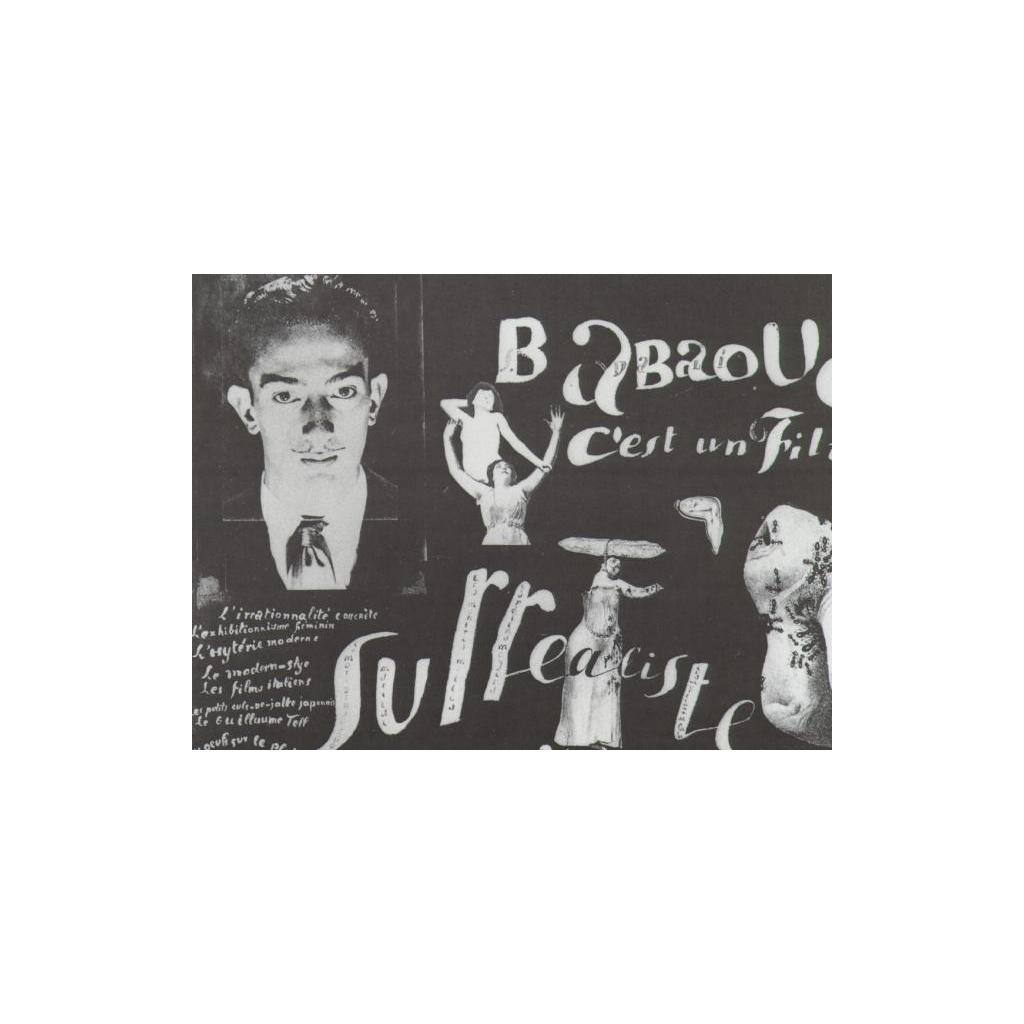 BaBaoU
C'est un Fil
Surrealiste
L'irrationnalité concrète
L'exhibitionnisme feminin
L'hytérie moderne
Le modern-style
Les films italiens
Les petits culs-de-jatte japonais
Le Guillaume Tell
oeufs sur le Pl